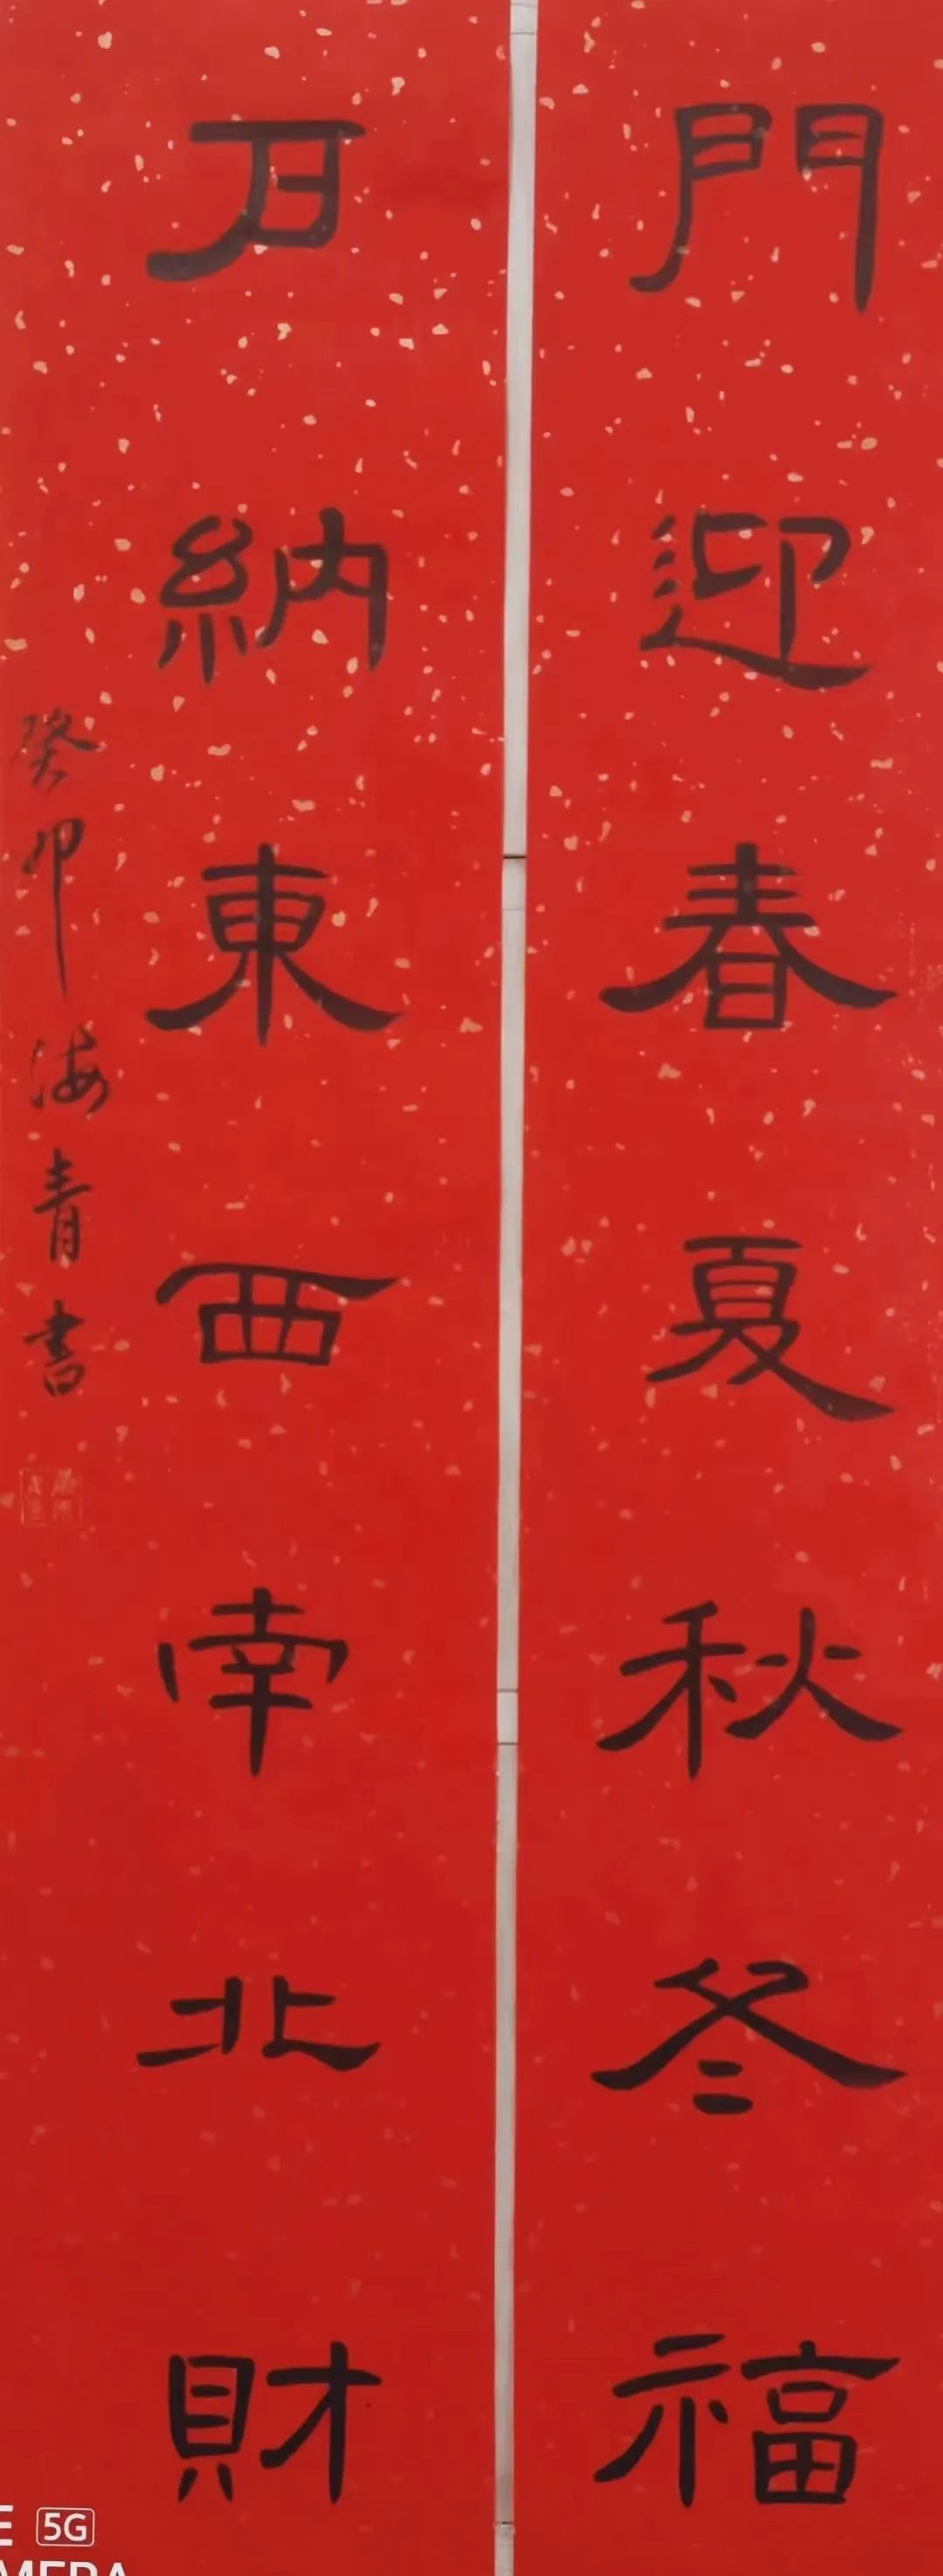 門迎春夏秋冬福
戶納東西南北財
癸卯海青書
5G